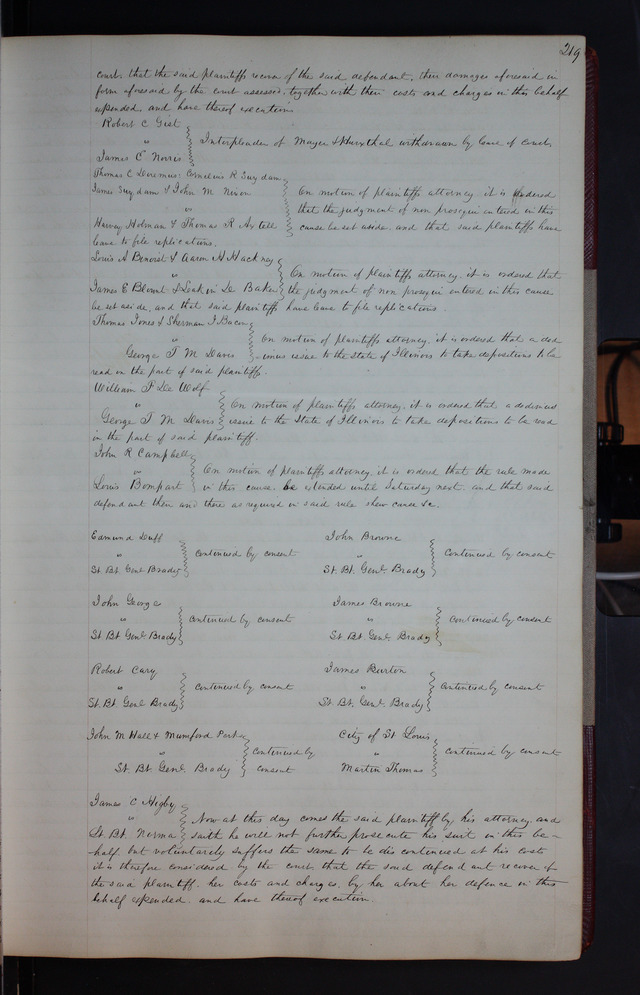 219
court, that the said plaintiffs recover of the said defendant, their damages aforesaid in
form aforesaid by the court assessed, together with their costs and charges in this behalf
expended, and have thereof execution
Robert C Gist
"
James C Norris
Interpleader of Mayer & Hurxthal withdrawn by leave of Court
Thomas C Doremus, Cornelius R Suydam
James Suydam & John M Nixon
"
Harvey Holman & Thomas R Axtell
On motion of plaintiffs attorney it is ordered
that the judgment of non prosequi entered in this
cause be set aside, and that said plaintiffs have
leave to file replications.
Louis A Benoist & Aaron H Hackney
"
James E Blount & Leakin De Baker
On motion of plaintiffs attorney, it is ordered that
the judgment of non prosequi entered in this cause
be set aside, and that said plaintiffs have leave to file replications.
Thomas Jones & Sherman J Bacon
"
George T M Davis
On motion of plaintiffs attorney, it is ordered that a ded
-imus issue to the State of Illinois to take depositions to be
read on the part of said plaintiffs.
William F Dee Wolf
"
George T M Davis
On motion of plaintiffs attorney, it is ordered that a dedimus
issue to the State of Illinois to take depositions to be read
on the part of said plaintiff.
John R Campbell
"
Louis Bompart
On motion of plaintiffs attorney, it is ordered that the rule made
in this cause, be extended until Saturday next, and that said
defendant then and there as required in said rule shew cause &c.
Edmund Duff
"
St. Bt. Genl Brady
Continued by consent
John Browne
"
St. Bt. Genl. Brady
Continued by consent
John George
"
St. Bt. Genl. Brady
Continued by consent
James Browne
"
St. Bt. Genl. Brady
Continued by consent
Robert Cary
"
St. Bt. Genl Brady
Continued by consent
James Burton
"
St. Bt. Genl. Brady
Continued by consent
John M Hall & Mumford Porter
"
St. Bt. Genl. Brady
Continued by
consent
City of St Louis
"
Martin Thomas
Continued by consent
James C Higby
"
St. Bt. Norma
Now at this day comes the said plaintiff by his attorney, and
saith he will not further prosecute his suit in this be-
-half, but voluntarily suffers the same to be discontinued at his costs
it is therefore considered by the court, that the said defendant recover of
the said plaintiff, her costs and charges, by her about her defence in this
behalf expended, and have thereof execution.